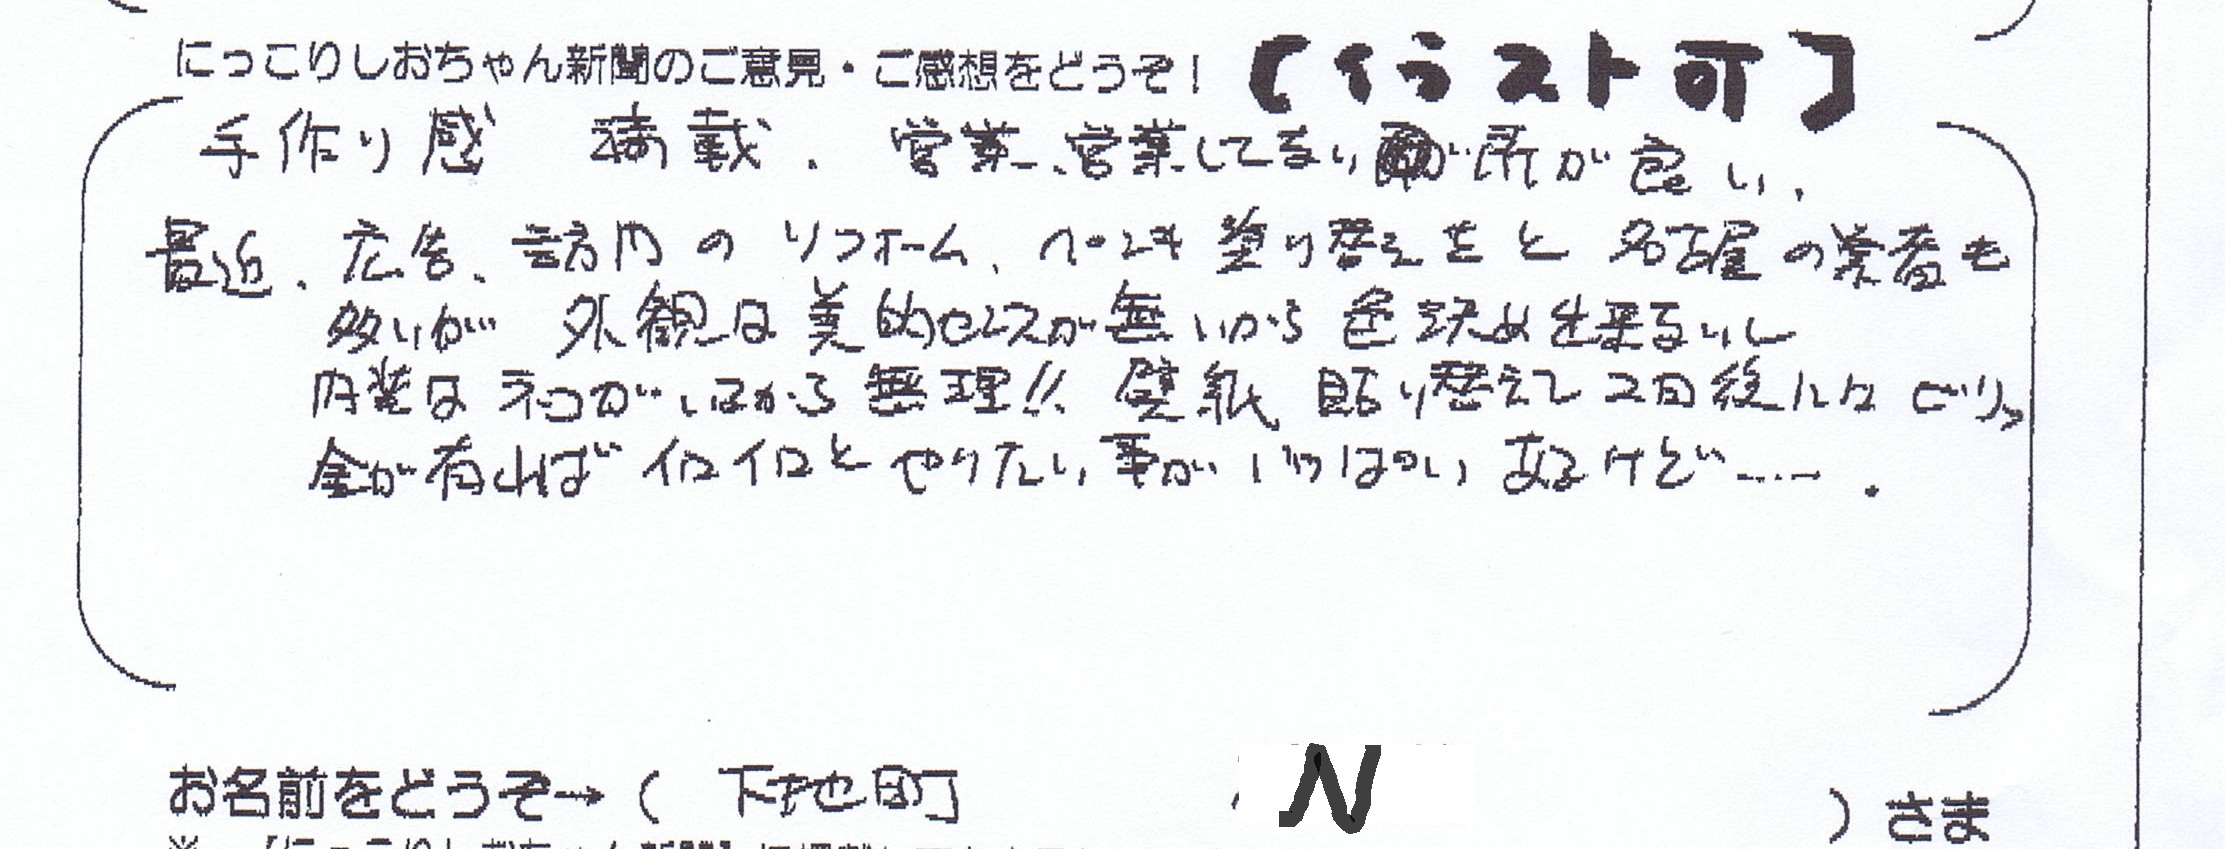 にっこりしおちゃん新聞のご意見・ご感想をどうぞ! 【イラスト可】
手作り感 満載. 営業、営業してない所が良い.
最近、広告、訪問のリフォーム、ペンキ塗り替えをと名古屋の業者も
多いが 外観は美的センスが無いから色決め出来ないし
内装はネコがいるから無理!! 壁紙貼り替えて2日後にはビリッ
金が有ればイロイロとやりたい事がいっぱいあるけど‥‥.
お名前をどうぞ→( 下地町 N )さま